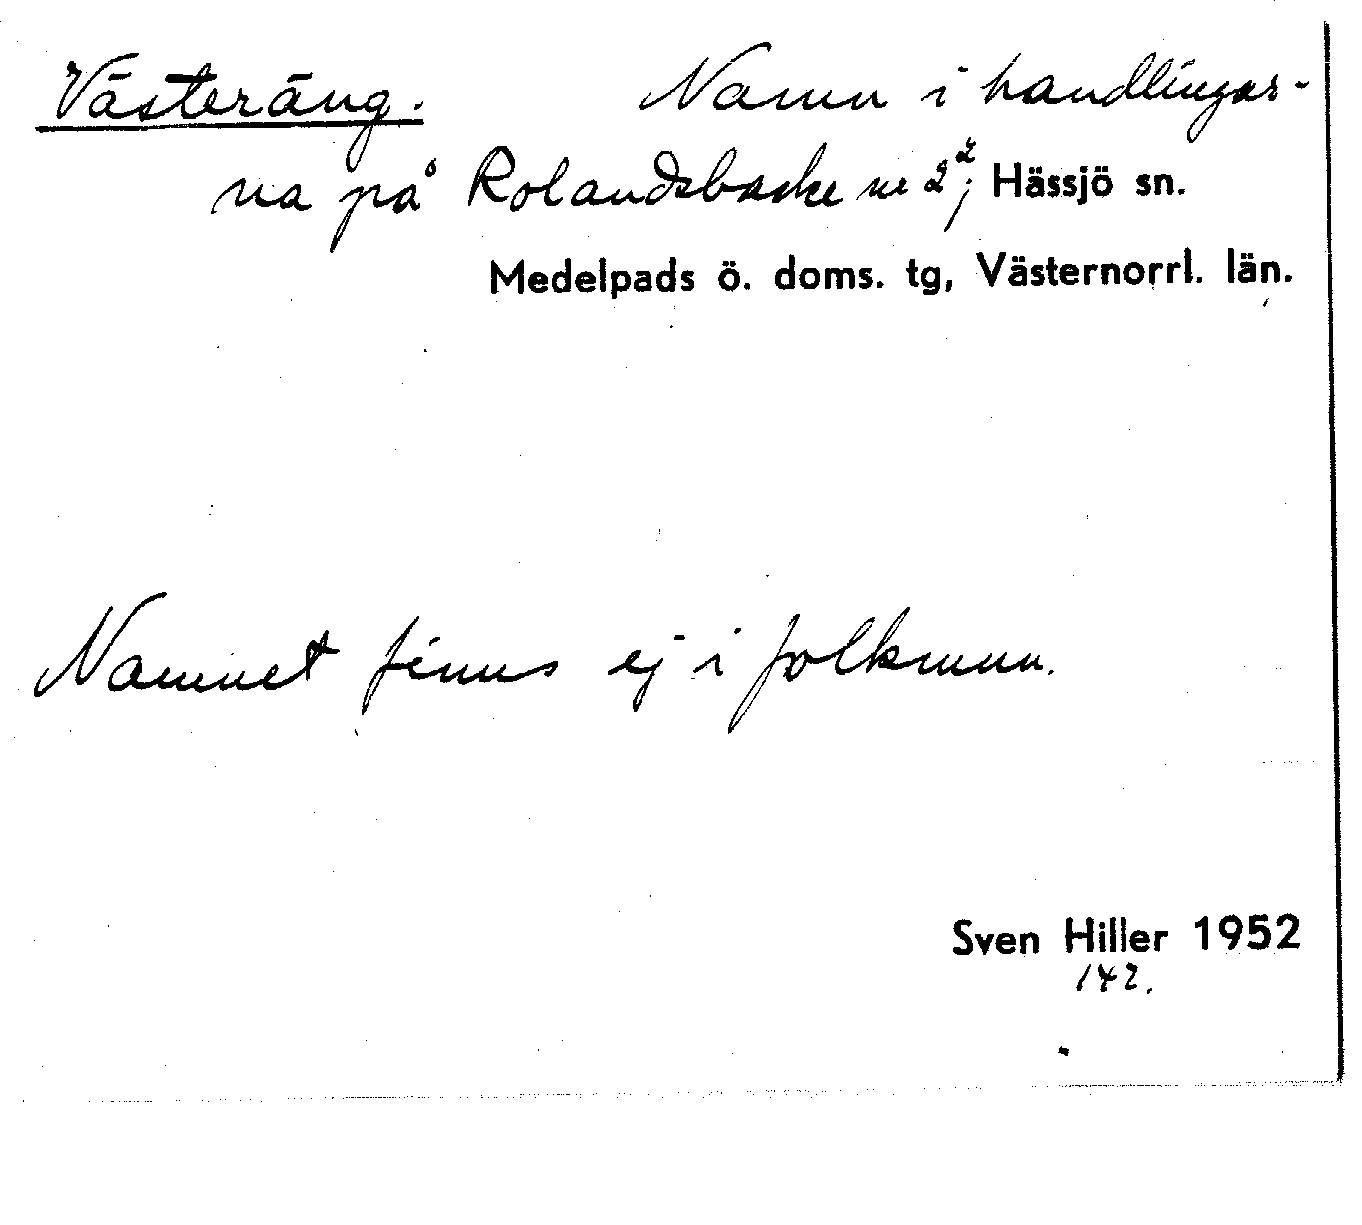 Västeräng. Namn i handlingar-
na på Rolandsbacke nr 2², Hässjö sn.
Medelpads ö. doms. tg, Västernorrl. län.
Namnet finns ej i folkmun.
Sven Hiller 1952
142.